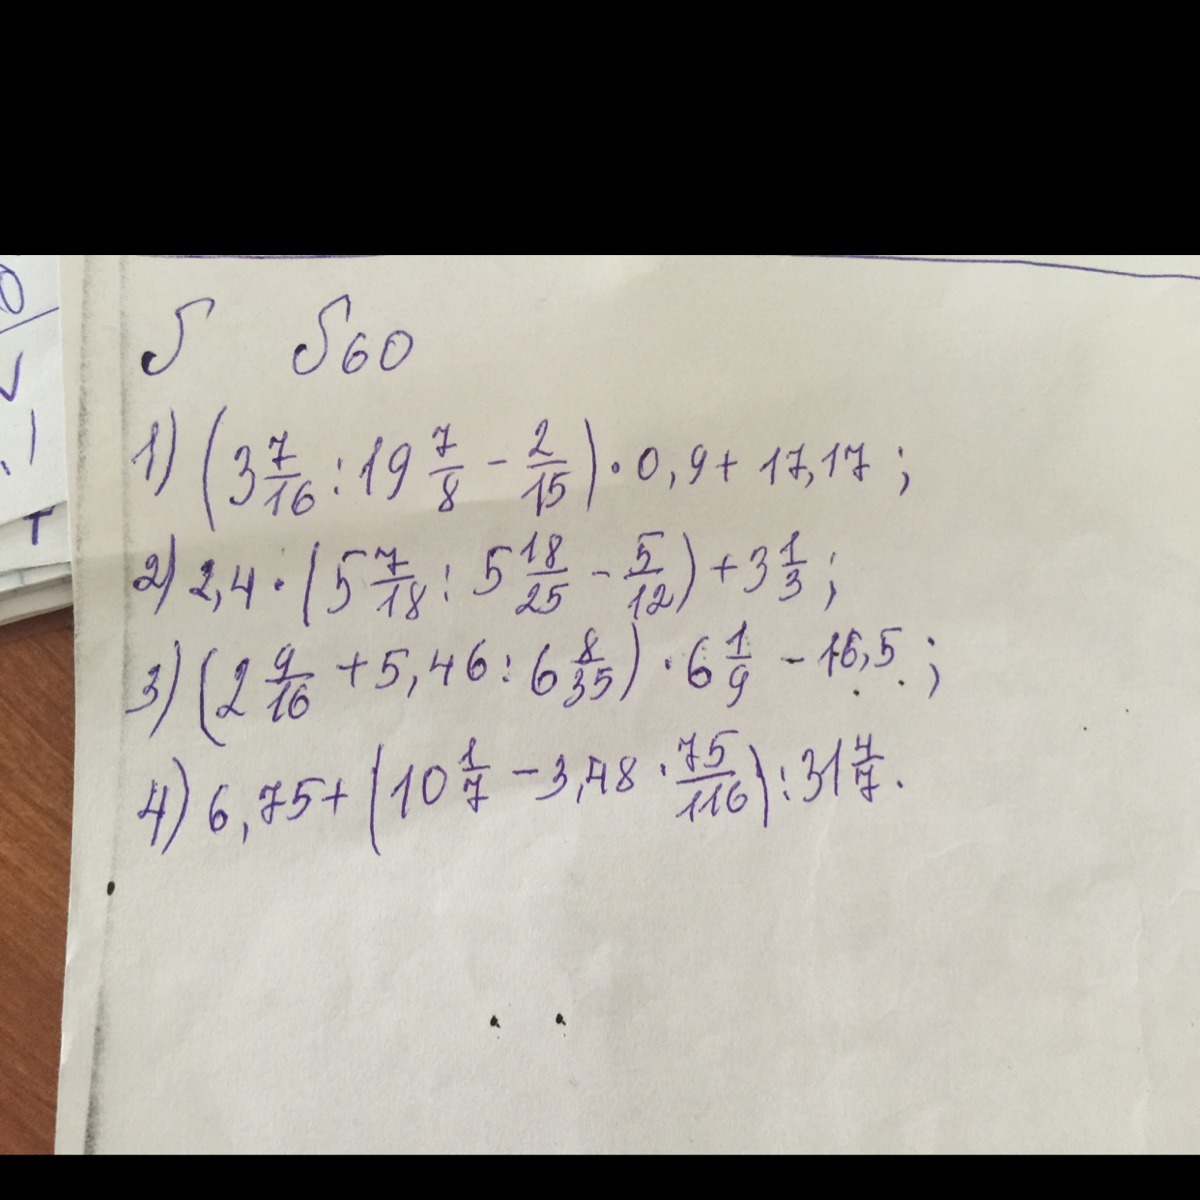 5 560
1) (3 7/16 : 19 7/8 - 2/15) · 0,9 + 17,17 ;
2) 2,4 · (5 7/18 : 5 18/25 - 5/12) + 3 1/3 ;
3) (2 9/16 + 5,46 : 6 8/35) · 6 1/9 - 16,5 ;
4) 6,75 + (10 1/7 - 3,48 · 75/116) : 31 4/7 .